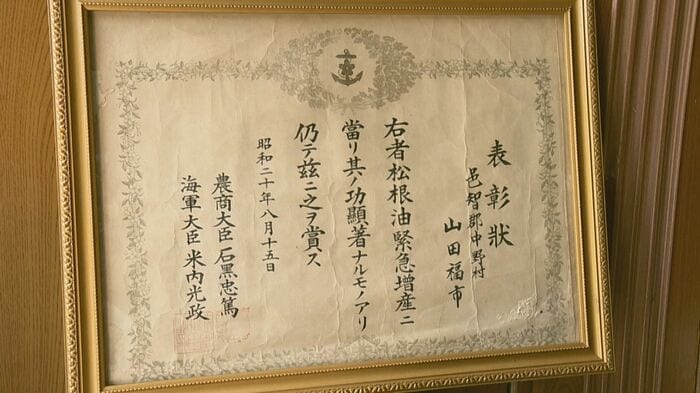 表彰狀
邑智郡中野村
山田福市
右者松根油緊急増産ニ
當リ其ノ功顯著ナルモノアリ
仍テ茲ニ之ヲ賞ス
昭和二十年八月十五日
農商大臣 石黑忠篤
海軍大臣 米内光政